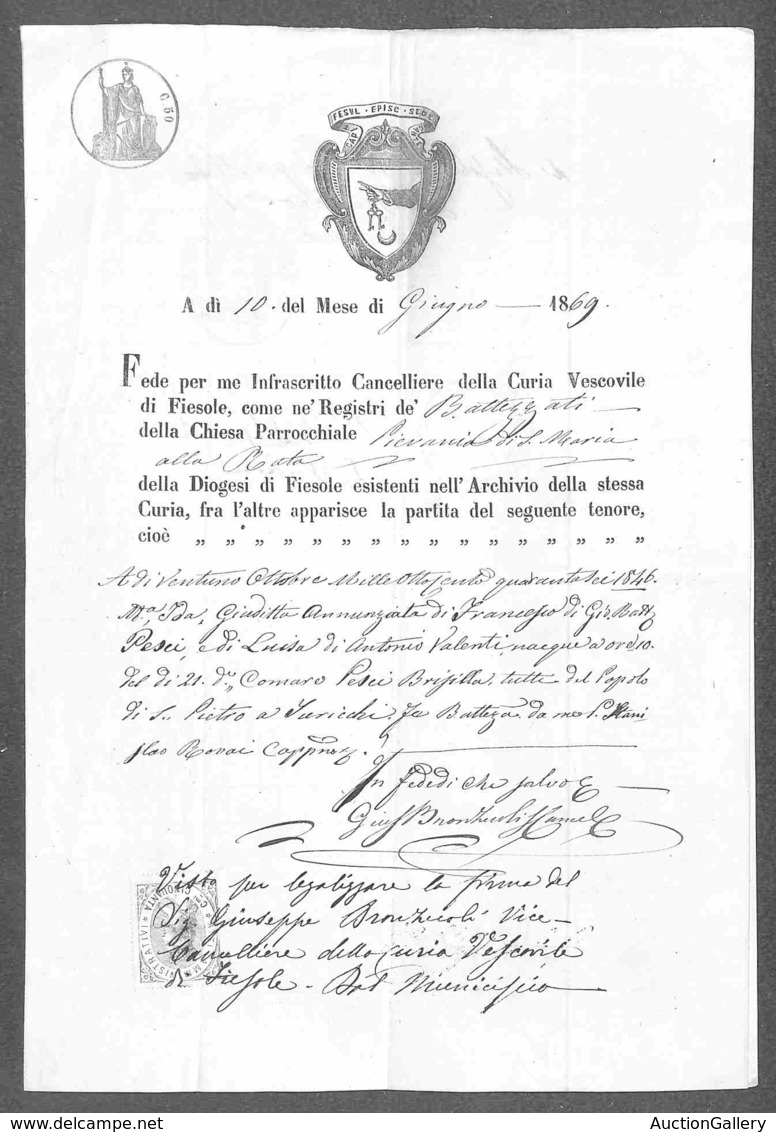 C. 50
FESVL · EPISC · SEDE
A dì 10. del Mese di Giugno — 1869.
Fede per me Infrascritto Cancelliere della Curia Vescovile
di Fiesole, come ne' Registri de' Battezzati
della Chiesa Parrocchiale Pievania di S. Maria
alla
della Diogesi di Fiesole esistenti nell'Archivio della stessa
Curia, fra l'altre apparisce la partita del seguente tenore,
cioè „ „ „ „ „ „ „ „ „ „ „ „ „ „ „ „
A di Ventuno Ottobre Mille Ottocento quarantasei 1846.
M.a Ida, Giuditta Annunziata di Francesco di Gio. Batt.
Pesci, e di Luisa di Antonio Valenti, nacque a ore 10.
del di 21. d.o Comare Pesci tutti del Popolo
di S. Pietro a Fu Battezz.a da me P. Stani
slao Rovai
In fede di che salvo
Gius. Bronzuoli V. Cancel.
Visto per legalizzare la firma del
Sig. Giuseppe Bronzuoli Vice
Cancelliere della Curia Vescovile
di Fiesole. Dal Municipio
AuctionGallery
delcampe.net